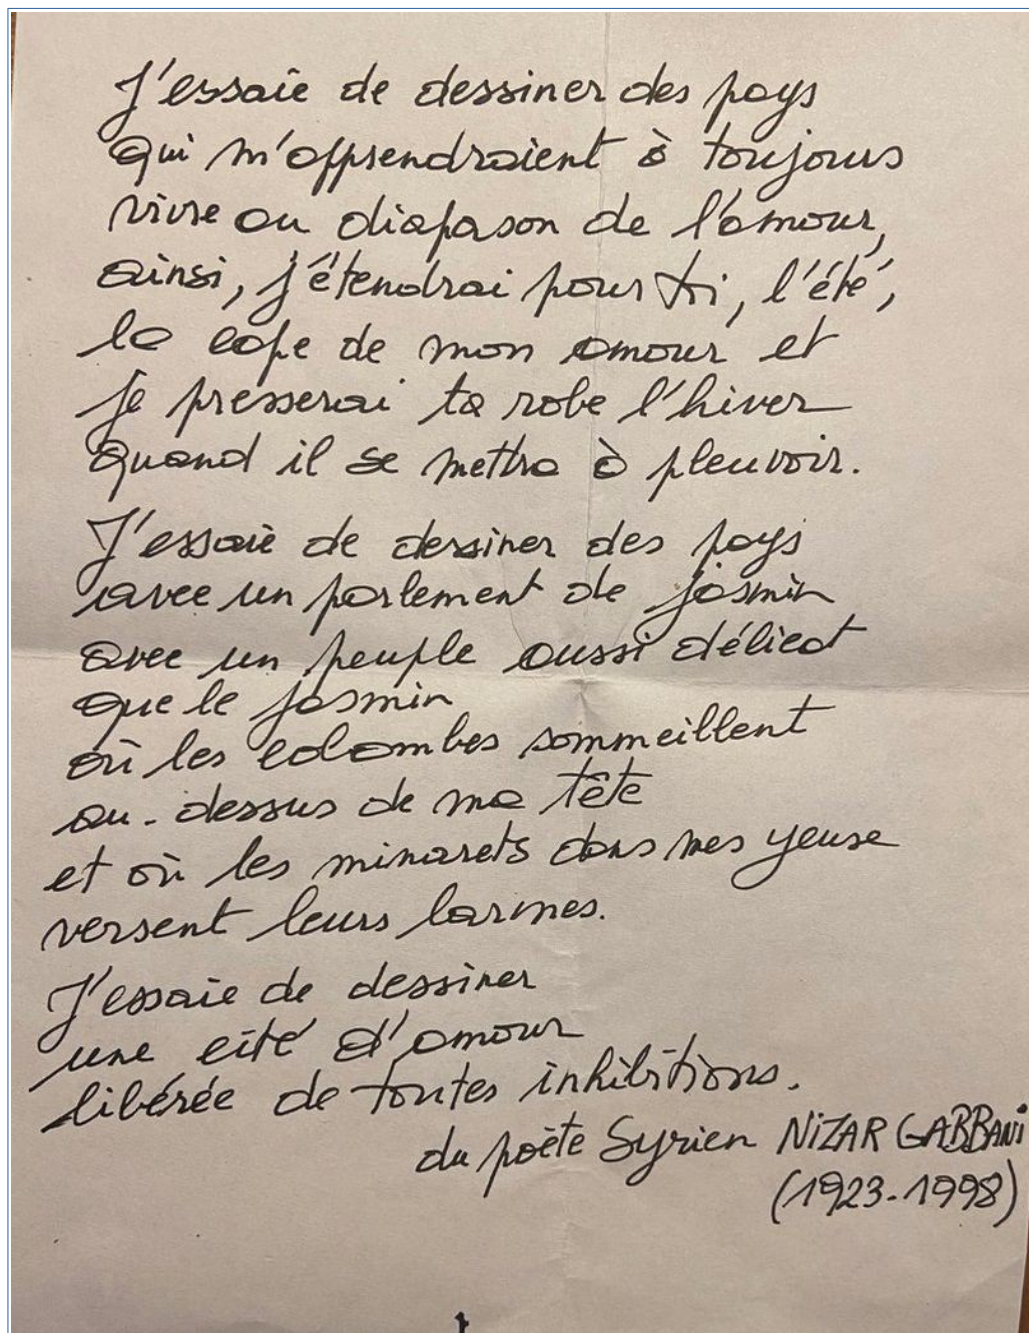 J'essaie de dessiner des pays
qui m'apprendraient à toujours
vivre au diapason de l'amour,
ainsi, j'étendrai pour toi, l'été,
la cape de mon amour et
je presserai ta robe l'hiver
quand il se mettra à pleuvoir.
J'essaie de dessiner des pays
avec un parlement de jasmin
avec un peuple aussi délicat
que le jasmin
où les colombes sommeillent
au-dessus de ma tête
et où les minarets dans mes yeux
versent leurs larmes.
J'essaie de dessiner
une cité d'amour
libérée de toutes inhibitions.
du poète Syrien NIZAR GABBANI
(1923-1998)